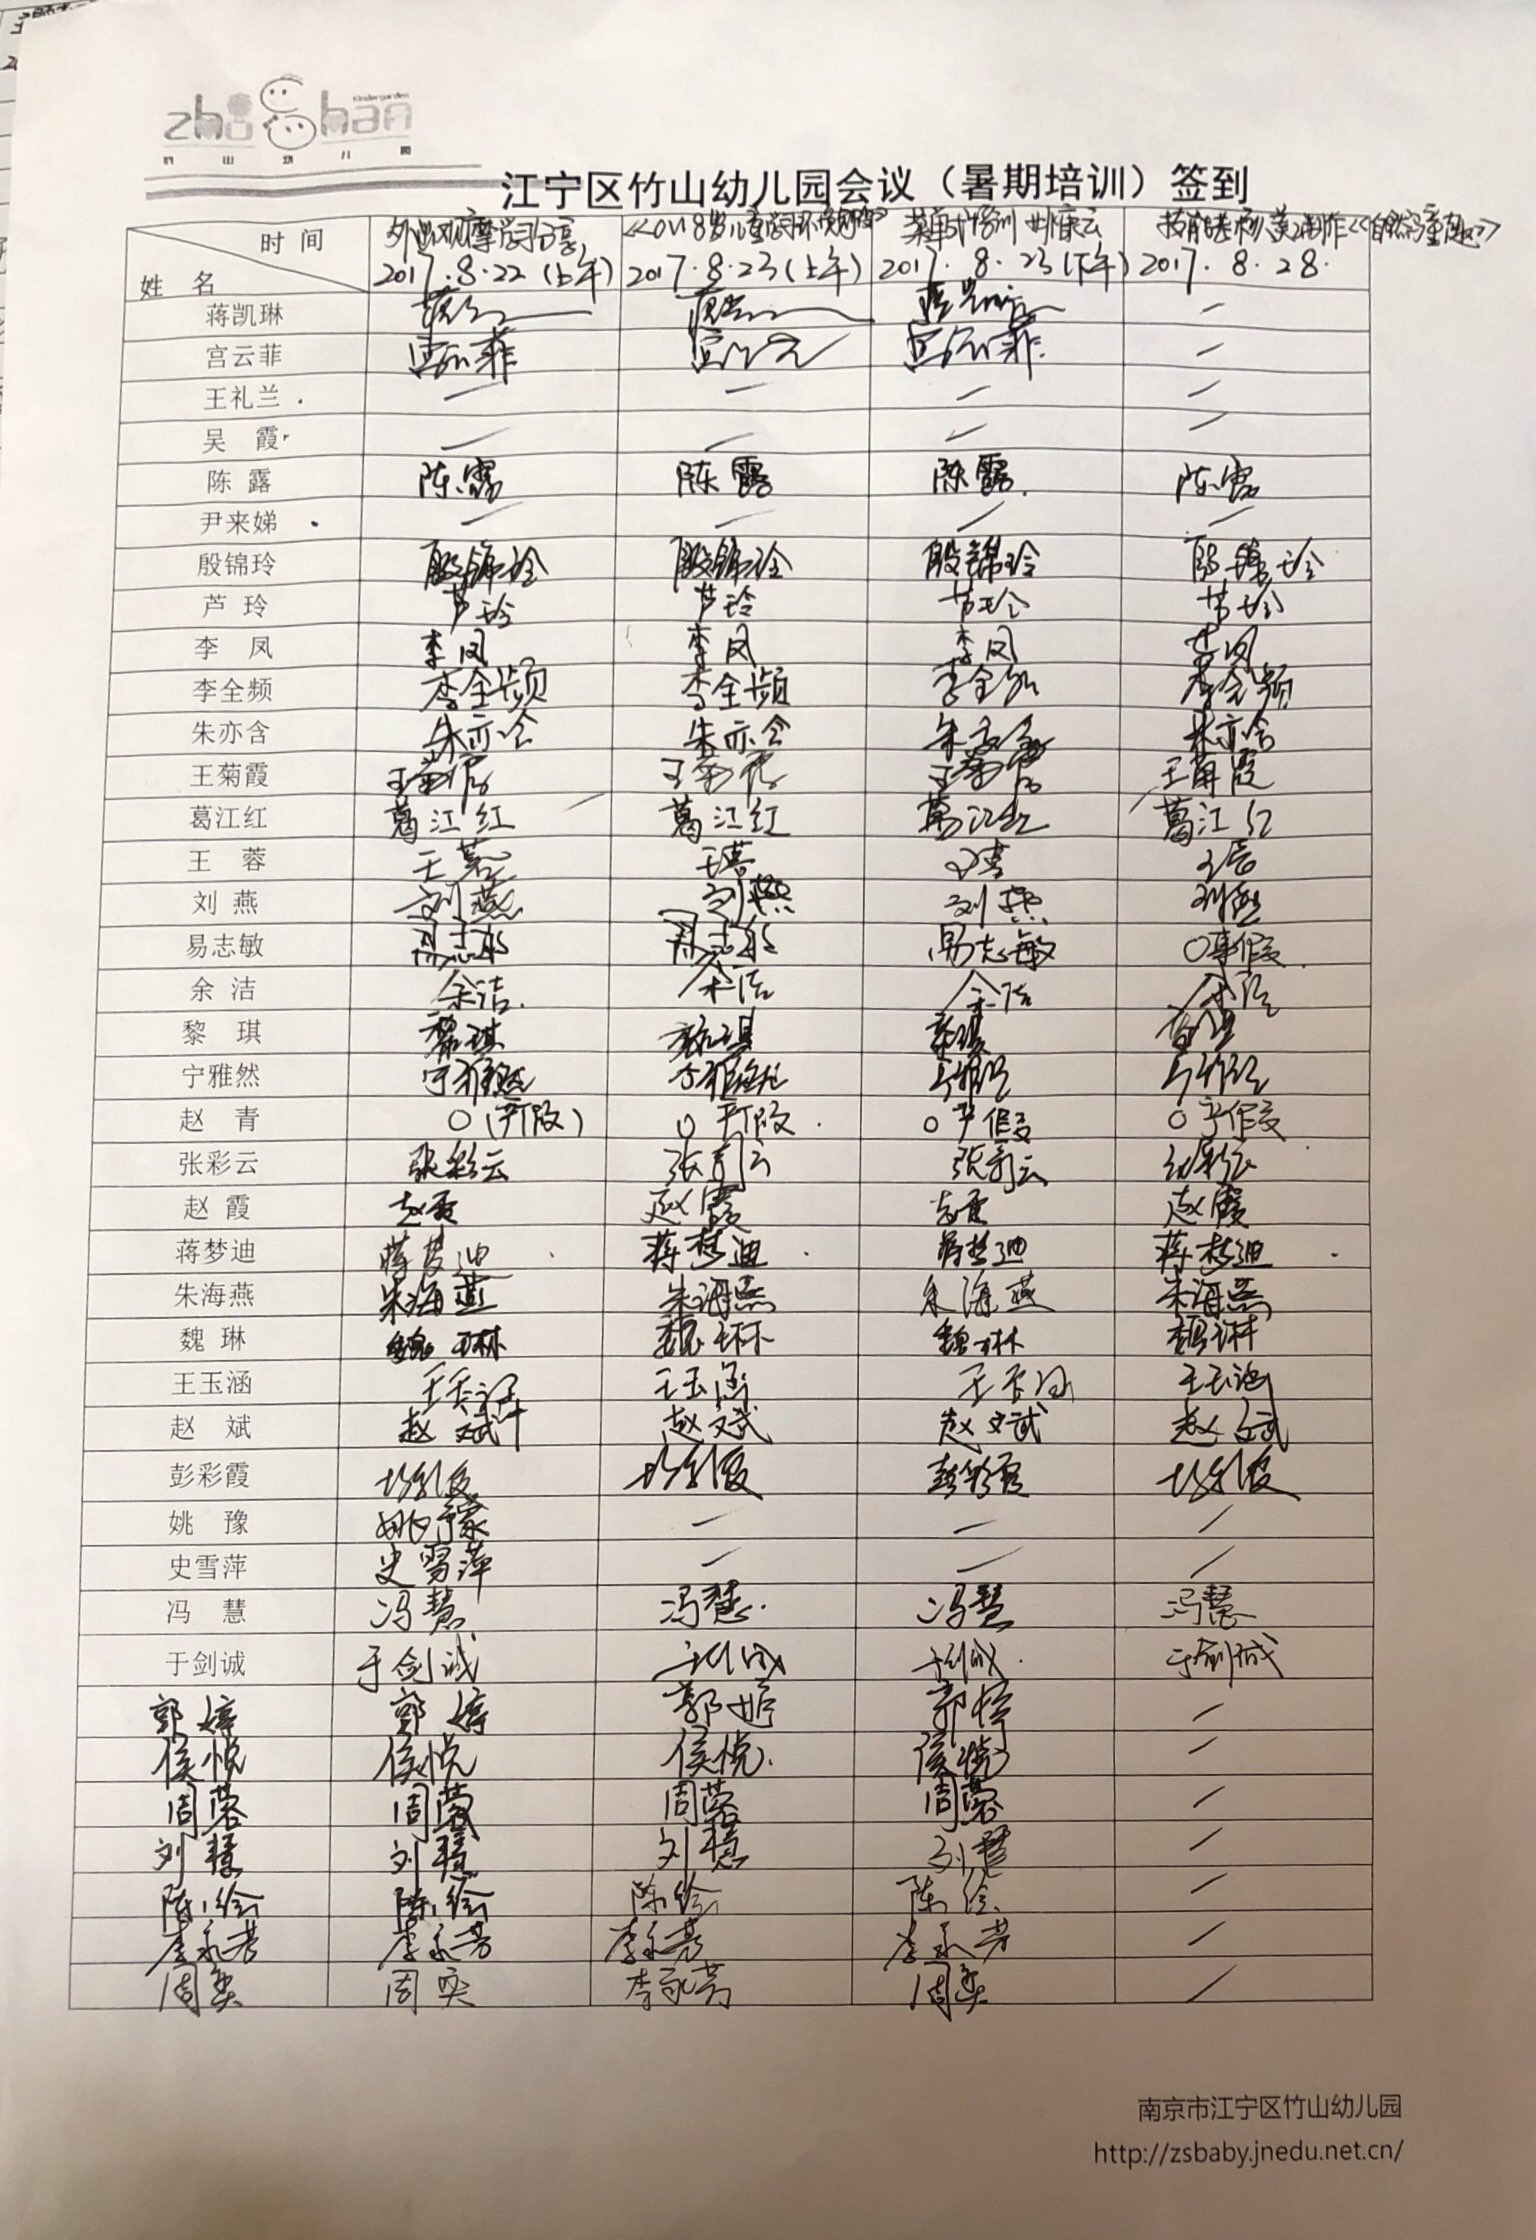 zhu shan Kindergarden
竹山幼儿园
江宁区竹山幼儿园会议（暑期培训）签到
时间 外出观摩学习分享 菜单式培训
2017.8.22(上午) 2017.8.23(上午) 2017.8.23(下午) 2017.8.28.
姓名
蒋凯琳 —
宫云菲 宫云菲 宫云菲 —
王礼兰 — — — —
吴霞 — — — —
陈露 陈露 陈露 陈露 陈露
尹来娣 — — — —
殷锦玲 殷锦玲 殷锦玲 殷锦玲 殷锦玲
芦玲 芦玲 芦玲 芦玲 芦玲
李凤 李凤 李凤 李凤 李凤
李全频 李全频 李全频 李全频 李全频
朱亦含 朱亦含 朱亦含 朱亦含 朱亦含
王菊霞 王菊霞 王菊霞 王菊霞 王菊霞
葛江红 葛江红 葛江红 葛江红 葛江红
王蓉 王蓉 王蓉 王蓉 王蓉
刘燕 刘燕 刘燕 刘燕 刘燕
易志敏 易志敏 易志敏 易志敏 〇事假
余洁 余洁 余洁 余洁 余洁
黎琪 黎琪 黎琪 黎琪 黎琪
宁雅然 宁雅然 宁雅然 宁雅然 宁雅然
赵青 〇(产假) 〇产假 〇产假 〇产假
张彩云 张彩云 张彩云 张彩云 张彩云
赵霞 赵霞 赵霞 赵霞 赵霞
蒋梦迪 蒋梦迪 蒋梦迪 蒋梦迪 蒋梦迪
朱海燕 朱海燕 朱海燕 朱海燕 朱海燕
魏琳 魏琳 魏琳 魏琳 魏琳
王玉涵 王玉涵 王玉涵 王玉涵 王玉涵
赵斌 赵斌 赵斌 赵斌 赵斌
彭彩霞 彭彩霞 彭彩霞 彭彩霞 彭彩霞
姚豫 姚豫 — — —
史雪萍 史雪萍 — — —
冯慧 冯慧 冯慧 冯慧 冯慧
于剑诚 于剑诚 于剑诚 于剑诚 于剑诚
郭婷 郭婷 郭婷 郭婷 —
侯悦 侯悦 侯悦 侯悦 —
周蓉 周蓉 周蓉 周蓉 —
刘慧 刘慧 刘慧 刘慧 —
陈绘 陈绘 陈绘 陈绘 —
李永芳 李永芳 李永芳 李永芳 —
周奕 周奕 李永芳 周奕 —
南京市江宁区竹山幼儿园
http://zsbaby.jnedu.net.cn/